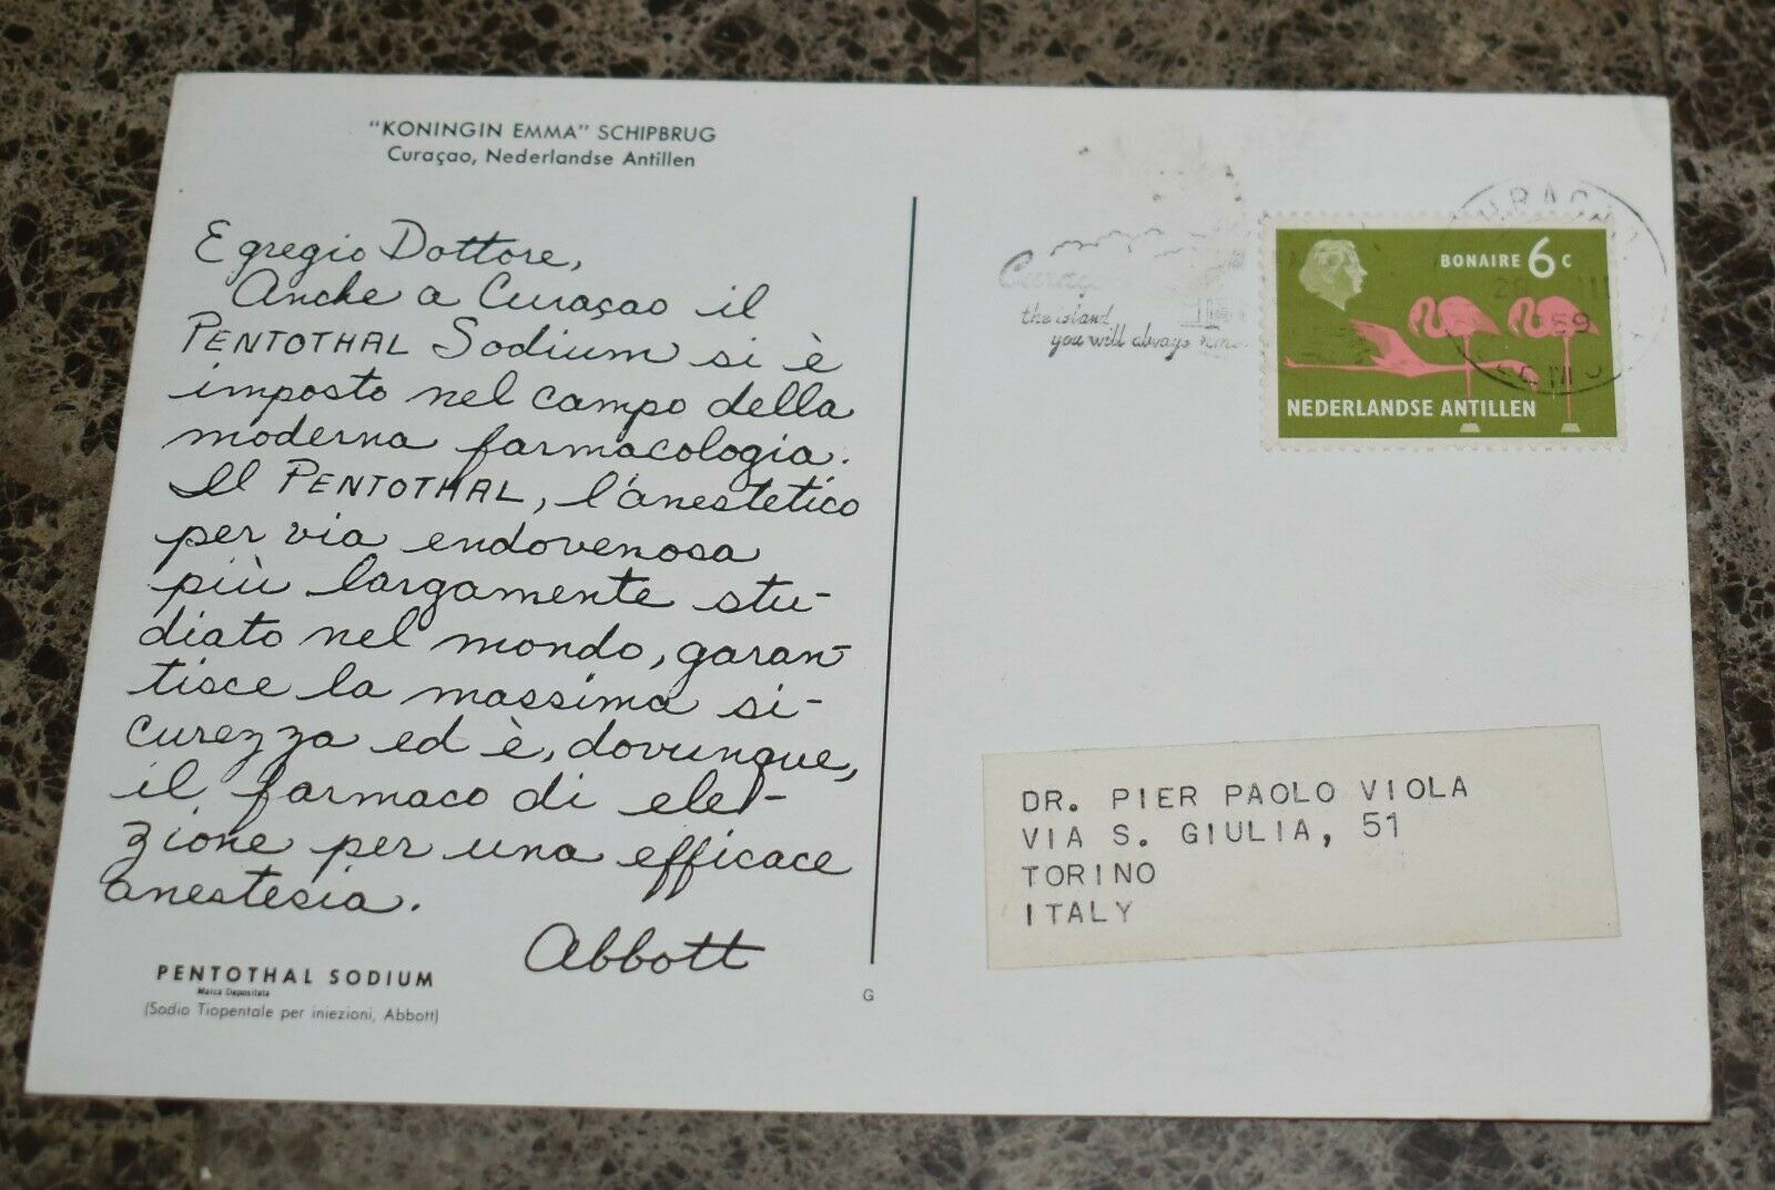 "KONINGIN EMMA" SCHIPBRUG
Curaçao, Nederlandse Antillen
Egregio Dottore,
Anche a Curaçao il
PENTOTHAL Sodium si è
imposto nel campo della
moderna farmacologia.
Il PENTOTHAL, l'anestetico
per via endovenosa
più largamente stu-
diato nel mondo, garan-
tisce la massima si-
curezza ed è, dovunque,
il farmaco di ele-
zione per una efficace
anestesia.
Abbott
PENTOTHAL SODIUM
Marca Depositata
(Sodio Tiopentale per iniezioni, Abbott)
G
the island
you will always
BONAIRE 6 C
NEDERLANDSE ANTILLEN
59
DR. PIER PAOLO VIOLA
VIA S. GIULIA, 51
TORINO
ITALY